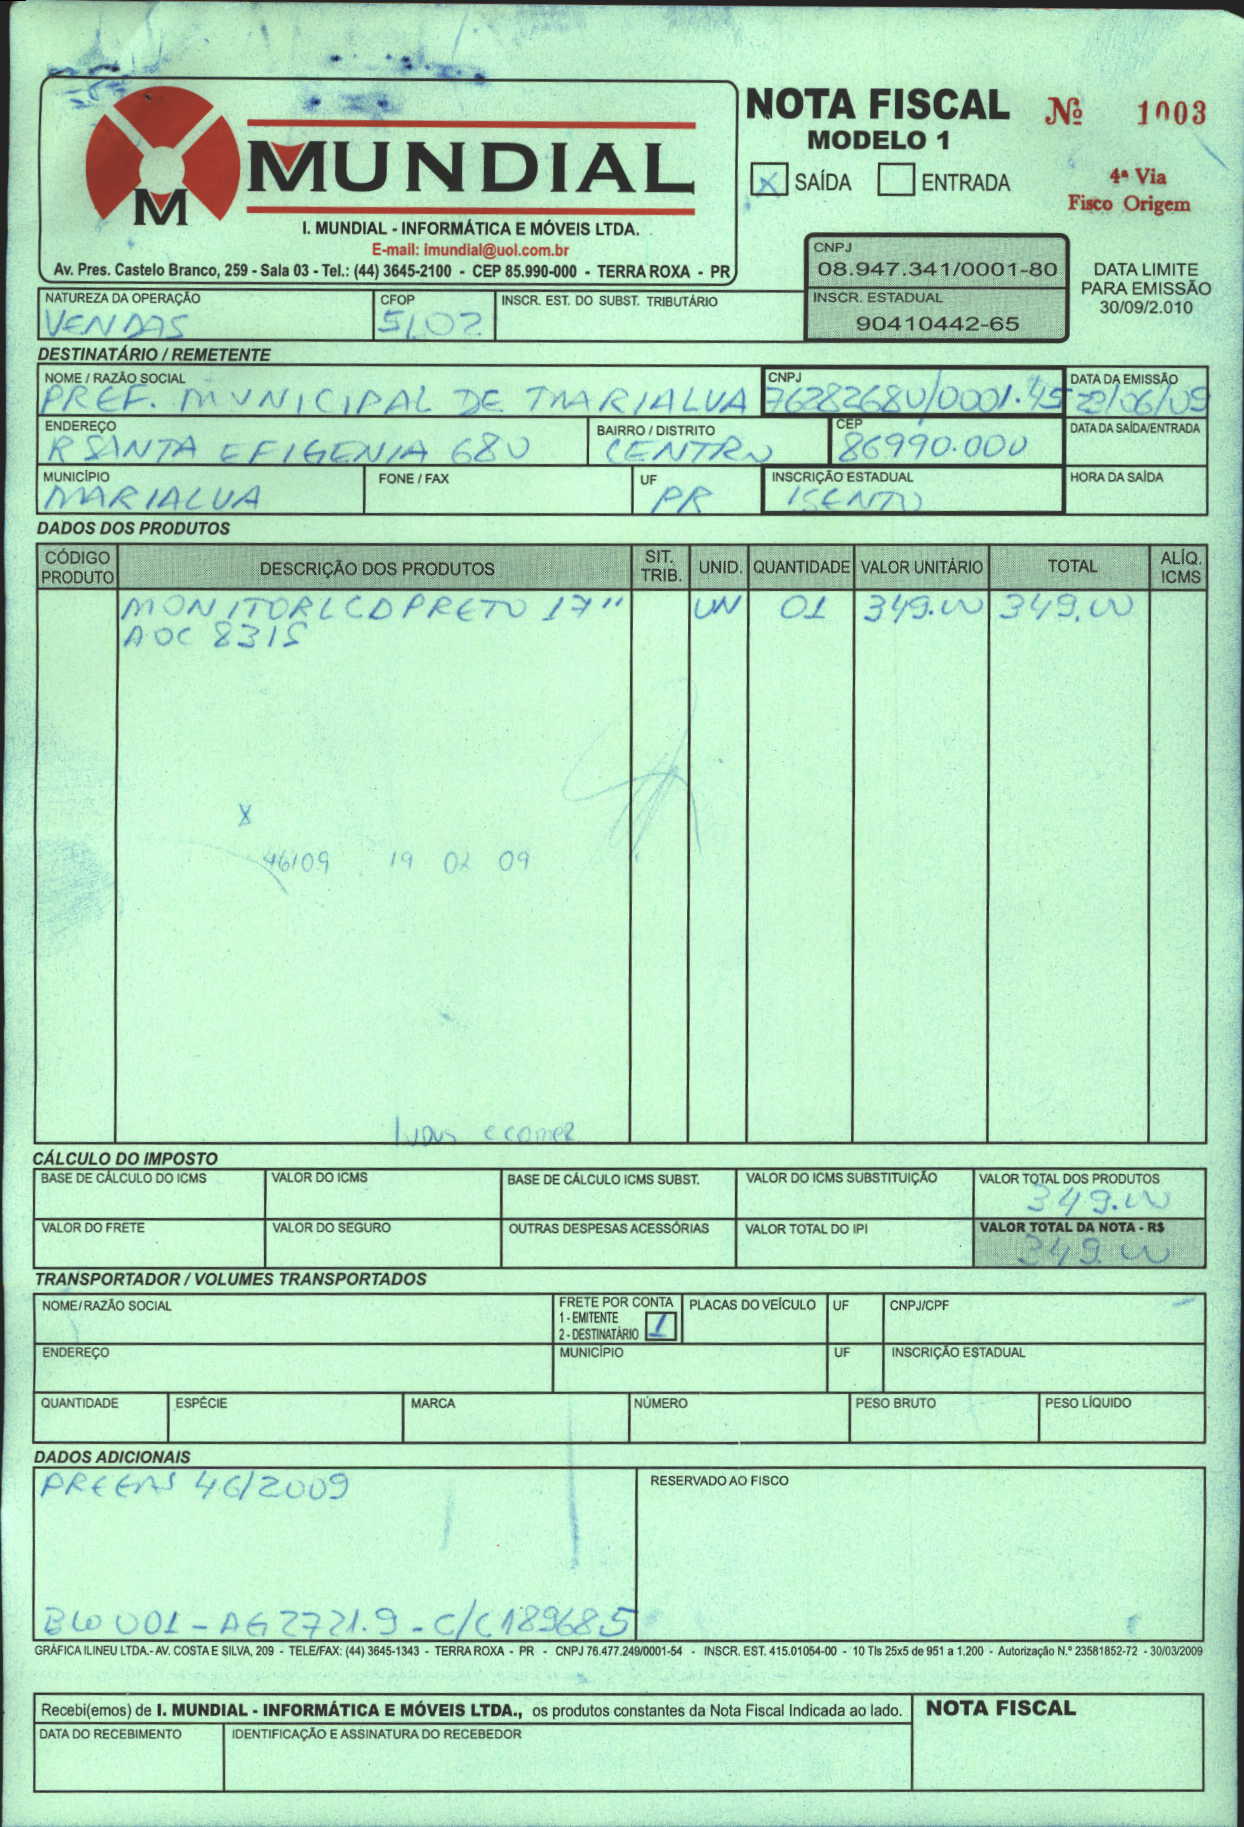 MUNDIAL
M
I. MUNDIAL - INFORMÁTICA E MÓVEIS LTDA.
E-mail: imundial@uol.com.br
Av. Pres. Castelo Branco, 259 - Sala 03 - Tel.: (44) 3645-2100 - CEP 85.990-000 - TERRA ROXA - PR
NOTA FISCAL Nº 1003
MODELO 1
X SAÍDA ENTRADA
4ª Via
Fisco Origem
CNPJ
08.947.341/0001-80
INSCR. ESTADUAL
90410442-65
DATA LIMITE
PARA EMISSÃO
30/09/2.010
NATUREZA DA OPERAÇÃO CFOP INSCR. EST. DO SUBST. TRIBUTÁRIO
VENDAS 5102
DESTINATÁRIO / REMETENTE
NOME / RAZÃO SOCIAL CNPJ DATA DA EMISSÃO
PREF. MUNICIPAL DE MARIALVA 76282680/0001.45 /06/09
ENDEREÇO BAIRRO / DISTRITO CEP DATA DA SAÍDA/ENTRADA
R SANTA EFIGENIA 680 CENTRO 86990.000
MUNICÍPIO FONE / FAX UF INSCRIÇÃO ESTADUAL HORA DA SAÍDA
MARIALVA PR ISENTO
DADOS DOS PRODUTOS
CÓDIGO PRODUTO DESCRIÇÃO DOS PRODUTOS SIT. TRIB. UNID. QUANTIDADE VALOR UNITÁRIO TOTAL ALÍQ. ICMS
MONITOR LCD PRETO 17" UN 01 349.00 349.00
AOC 831S
X
46109 19 02 09
CÁLCULO DO IMPOSTO
BASE DE CÁLCULO DO ICMS VALOR DO ICMS BASE DE CÁLCULO ICMS SUBST. VALOR DO ICMS SUBSTITUIÇÃO VALOR TOTAL DOS PRODUTOS
349.00
VALOR DO FRETE VALOR DO SEGURO OUTRAS DESPESAS ACESSÓRIAS VALOR TOTAL DO IPI VALOR TOTAL DA NOTA - R$
349.00
TRANSPORTADOR / VOLUMES TRANSPORTADOS
NOME/RAZÃO SOCIAL FRETE POR CONTA PLACAS DO VEÍCULO UF CNPJ/CPF
1 - EMITENTE
2 - DESTINATÁRIO 1
ENDEREÇO MUNICÍPIO UF INSCRIÇÃO ESTADUAL
QUANTIDADE ESPÉCIE MARCA NÚMERO PESO BRUTO PESO LÍQUIDO
DADOS ADICIONAIS
46/2009 RESERVADO AO FISCO
001 - AG 2721.9 - C/C 189685
GRÁFICA ILINEU LTDA.- AV. COSTA E SILVA, 209 - TELE/FAX: (44) 3645-1343 - TERRA ROXA - PR - CNPJ 76.477.249/0001-54 - INSCR. EST. 415.01054-00 - 10 Tls 25x5 de 951 a 1.200 - Autorização N.º 23581852-72 - 30/03/2009
Recebi(emos) de I. MUNDIAL - INFORMÁTICA E MÓVEIS LTDA., os produtos constantes da Nota Fiscal Indicada ao lado. NOTA FISCAL
DATA DO RECEBIMENTO IDENTIFICAÇÃO E ASSINATURA DO RECEBEDOR